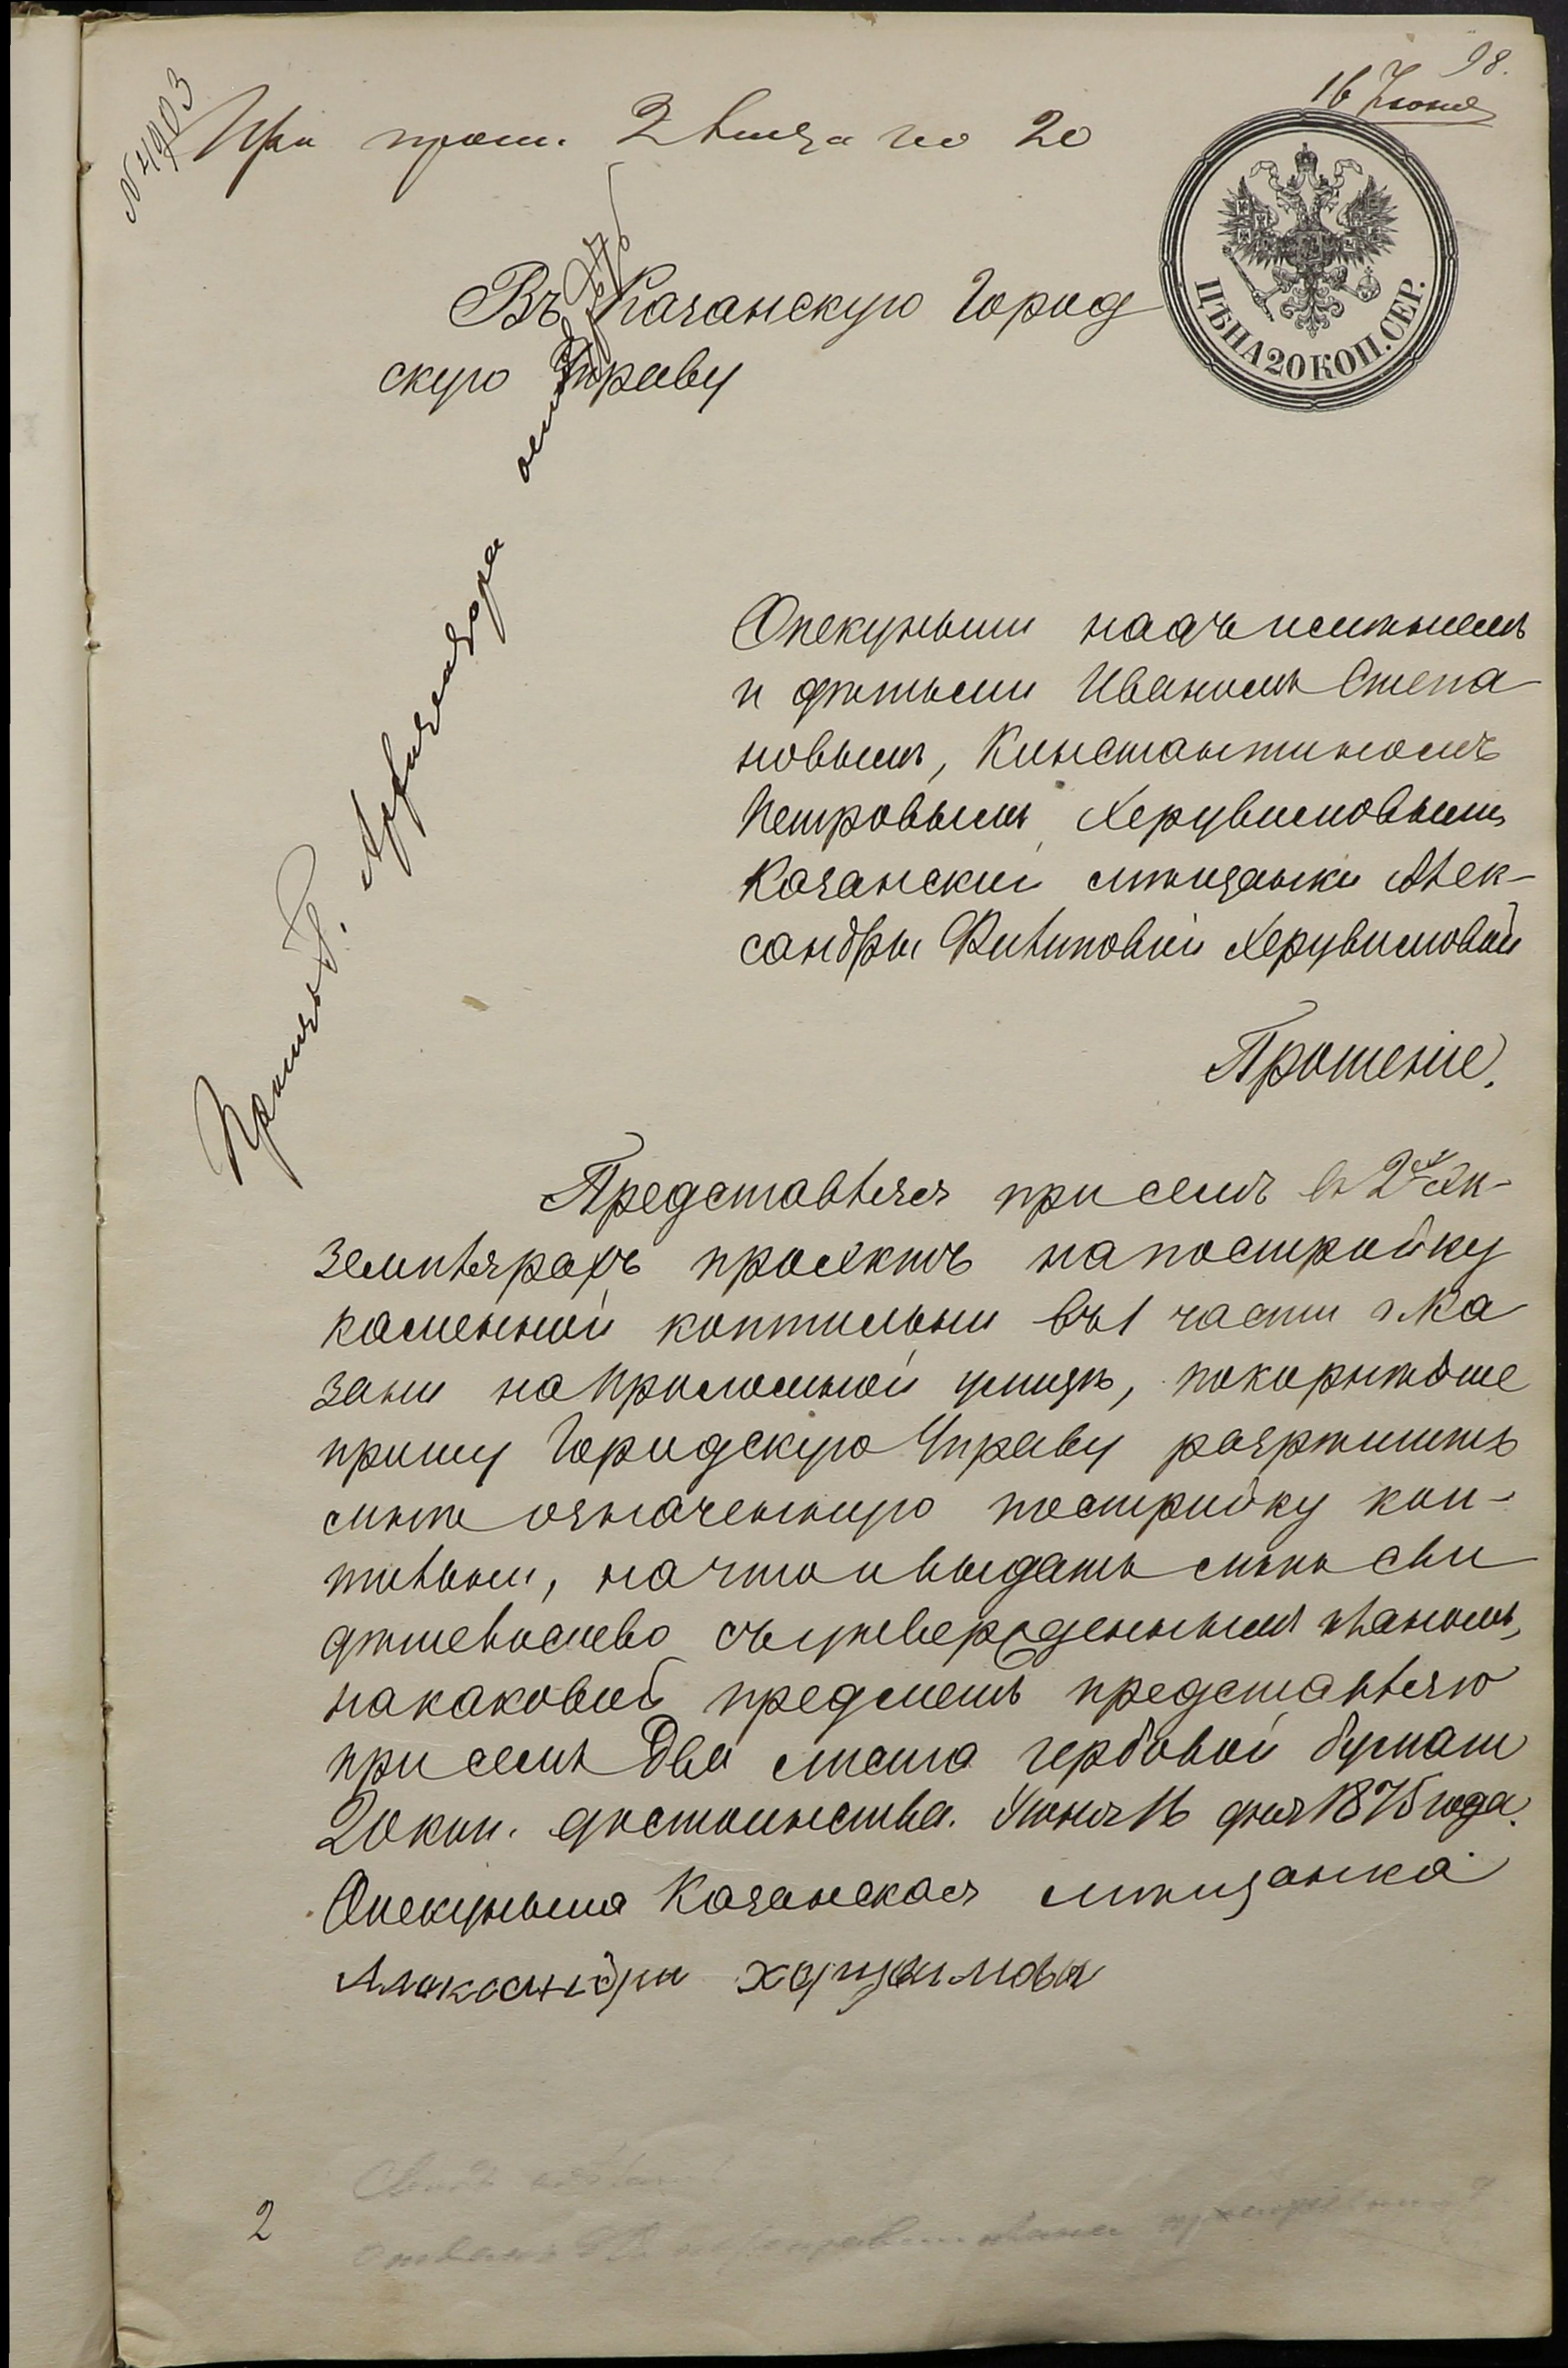 98.
16 Іюня
№ 4903
При прош. 2 листа по 20
ЦѢНА 20 КОП. СЕР.
Въ Казанскую Город
скую Управу
Прошу Г. Архитектора
Опекунши надъ имѣніемъ
и дѣтьми Иваномъ Степа
новымъ, Константиномъ
Петровымъ Херувимовымъ
Казанской мѣщанки Алек-
сандры Филиповой Херувимовой
Прошеніе.
Представляя при семъ въ 2хъ эк-
земплярахъ проэктъ на постройку
каменной коптильни въ 1 части г Ка
зани на Проломной улицѣ, покорнѣйше
прошу Городскую Управу разрѣшить
мнѣ означенную постройку коп-
тильни, на что и выдать мнѣ сви
дѣтельство съ утвержденнымъ планомъ,
на каковой предметъ представляю
при семъ два листа гербовой бумаги
20 коп. достоинства. Іюня 16 дня 1875 года.
Опекунша Казанская мѣщанка
Александра Херувимова
2